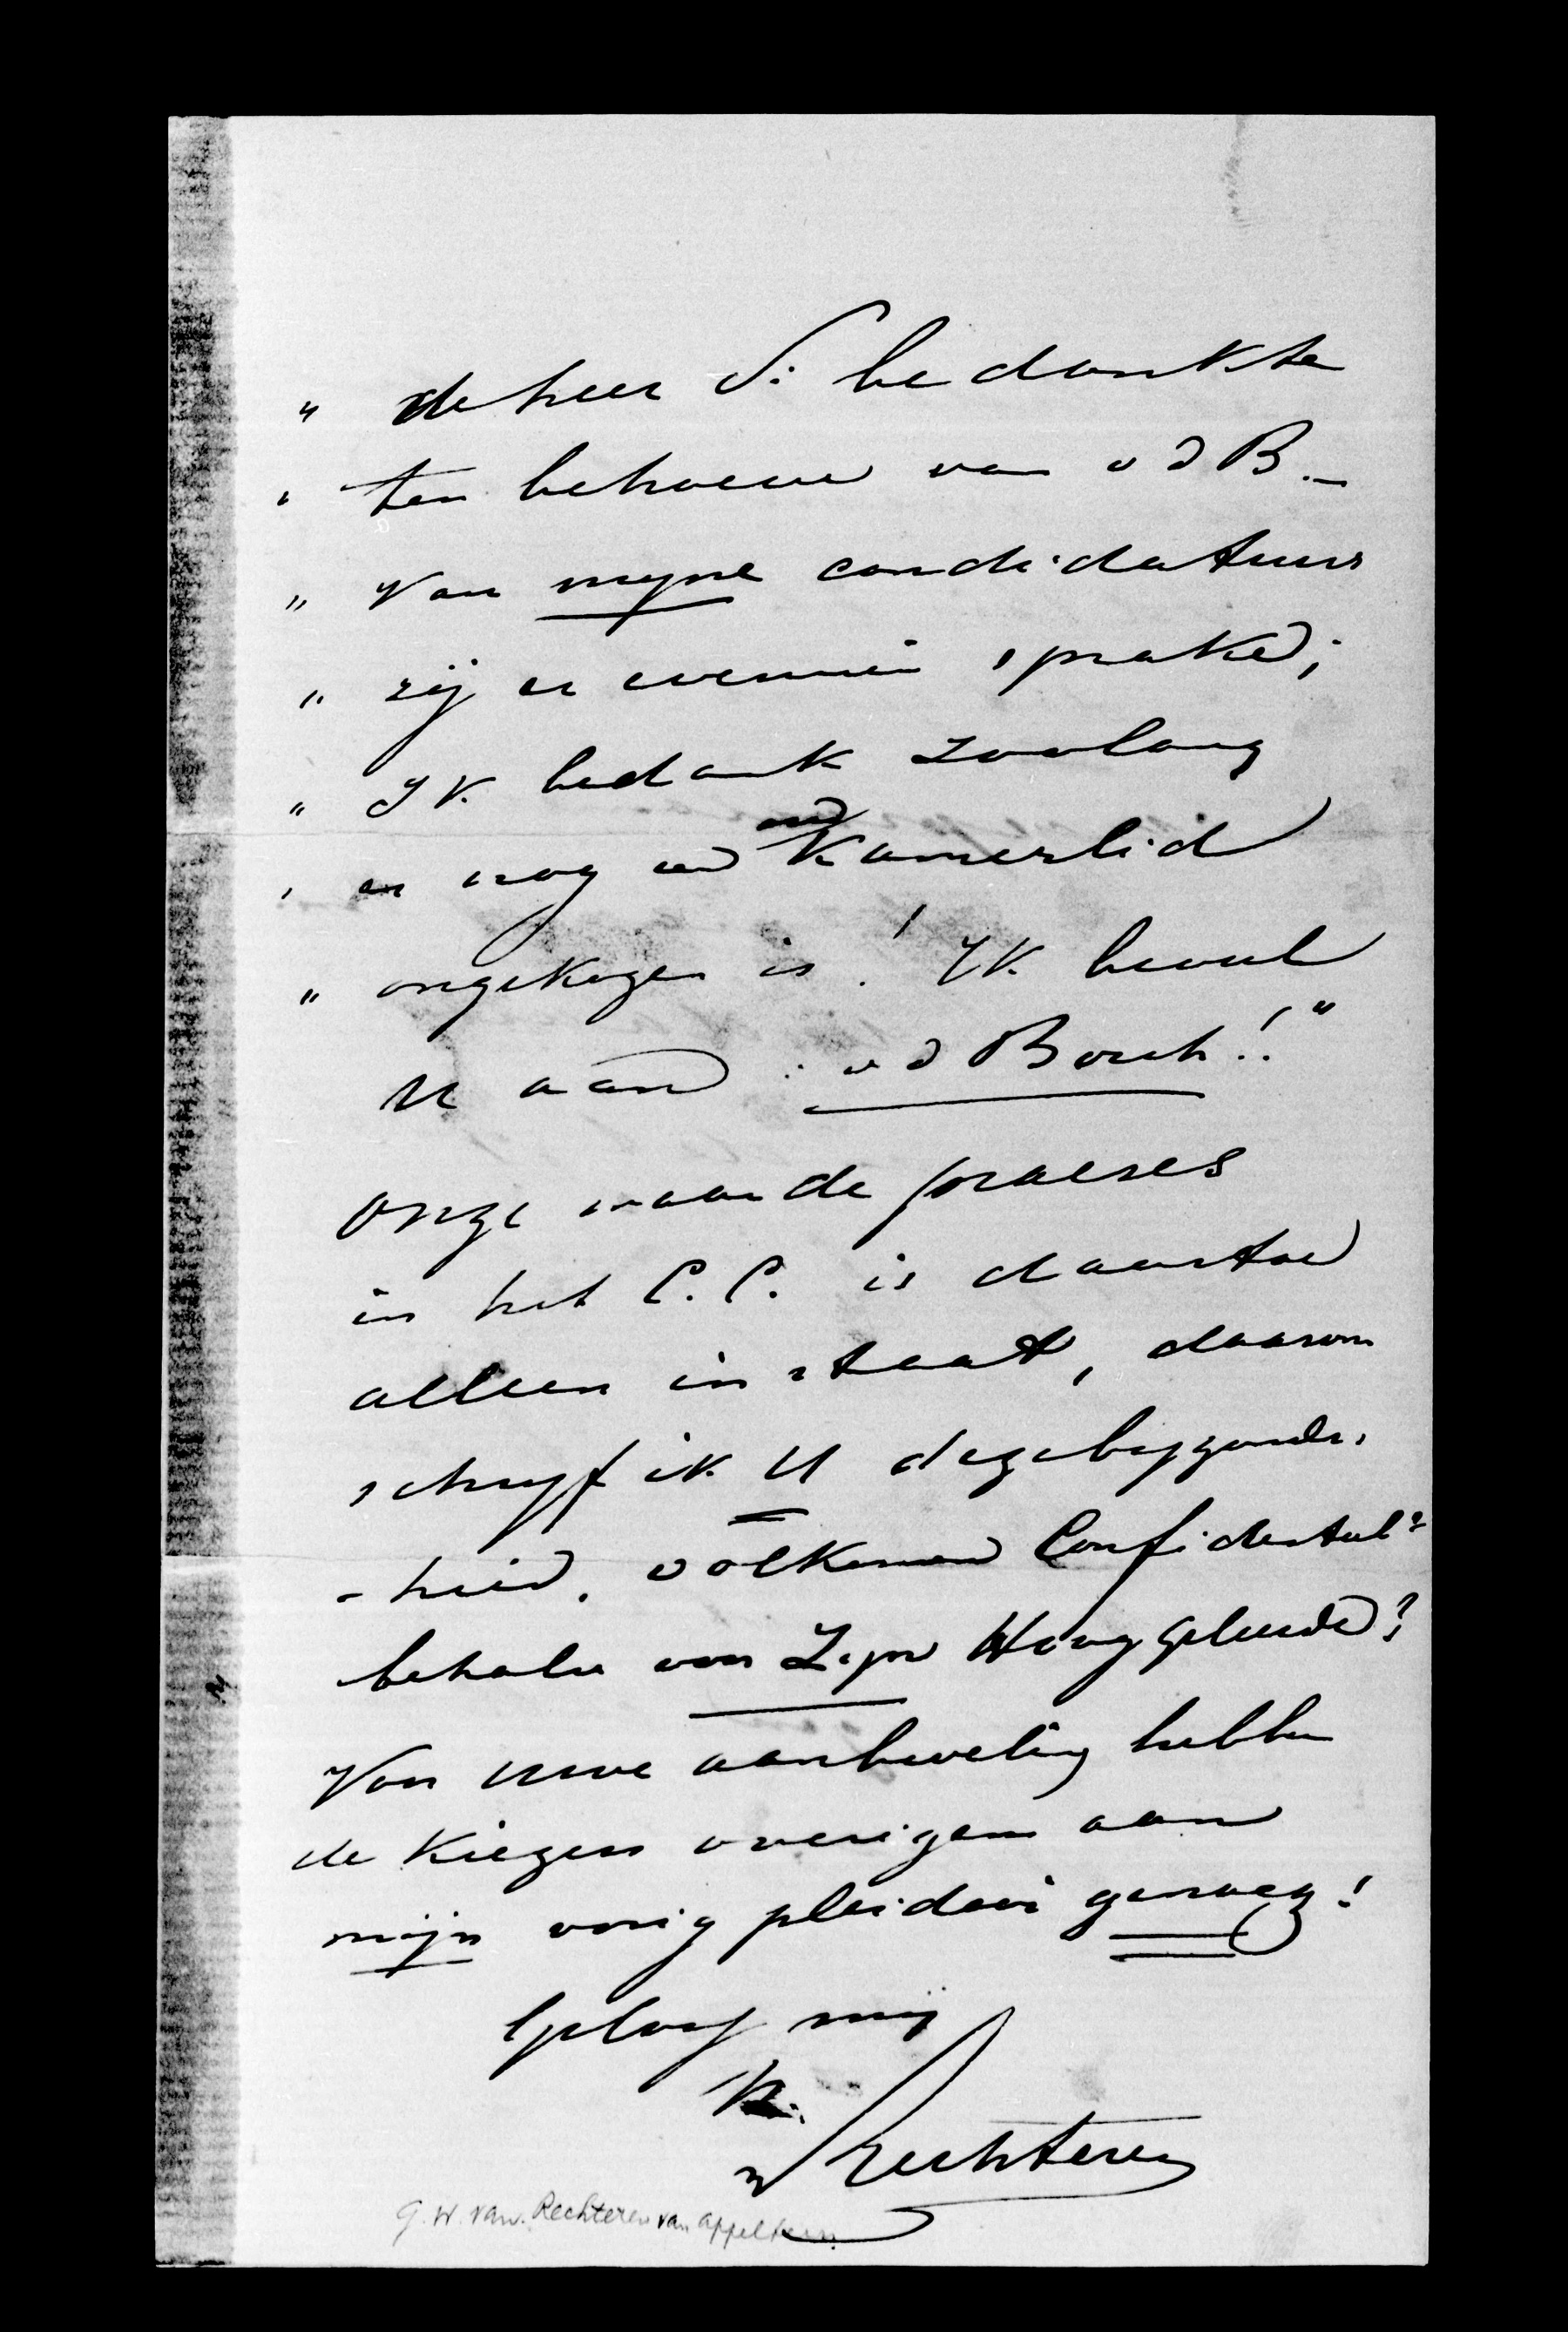 " de heer S: bedankte
" ten behoeve van v d B. _
" Van myne candidatuur
" zij er evenmin sprake;
" Ik bedank zoolang
" er nog een oud Kamerlid
" ongekozen is! Ik beveel
U aan : v d Borch!"
Onze waarde praeses
in het C. C. is daartoe
alleen in staat, daarom
schryf ik U deze byzonder-
-heid. volkomen Confidentieel
behalve voor Zijn Hooggeleerde!
Van uwe aanbeveling hebben
de Kiezers overigens aan
mijn vorig pleidooi genoeg!
Geloof mij
v Rechteren
G. W. van Rechteren van Appeltern.